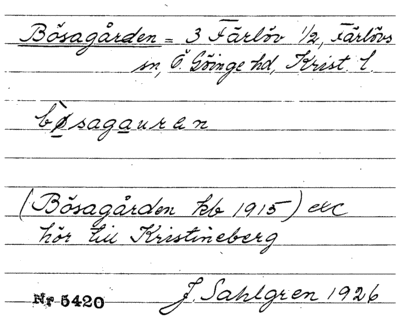 Bösagården = 3 Färlöv 1/2, Färlövs
sn, Ö. Göinge hd, Krist. l.
bøsagauran
(Bösagården kb 1915) etc
hör till Kristineberg
Nr 5420 J. Sahlgren 1926